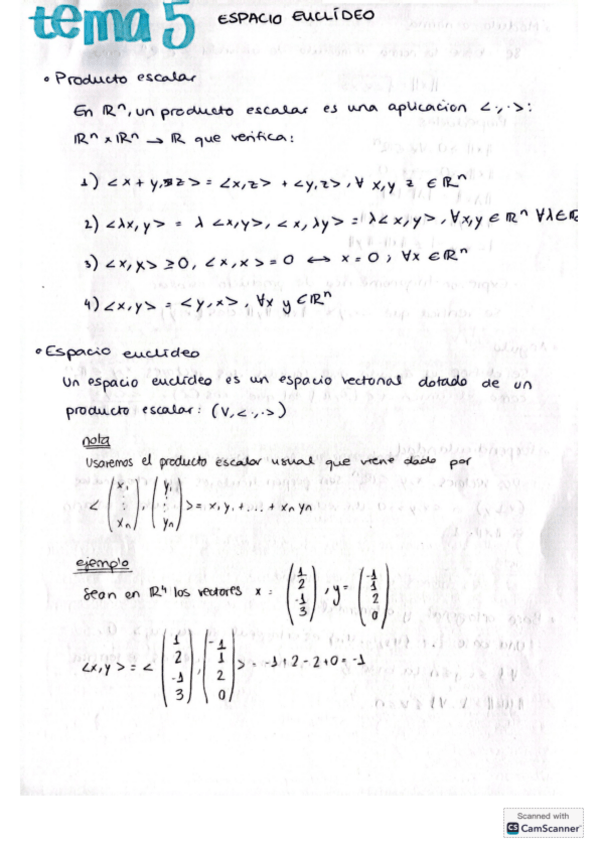 tema 5 ESPACIO EUCLÍDEO
• Producto escalar
En ℝⁿ, un producto escalar es una aplicacion <·,·>:
ℝⁿ x ℝⁿ → ℝ que verifica:
1) <x + y, z> = <x,z> + <y,z>, ∀ x,y z ∈ ℝⁿ
2) <λx, y> = λ <x,y>, <x, λy> = λ<x,y>, ∀x,y ∈ ℝⁿ ∀λ∈ℝ
3) <x,x> ≥0, <x,x> = 0 ↔ x = 0, ∀x ∈ℝⁿ
4) <x,y> = <y,x>, ∀x y ∈ℝⁿ
• Espacio euclídeo
Un espacio euclídeo es un espacio vectorial dotado de un
producto escalar: (V,<·,·>)
nota
Usaremos el producto escalar usual que viene dado por
< (x₁ ⋮ xₙ), (y₁ ⋮ yₙ) > = x₁y₁ + ... + xₙyₙ
ejemplo
Sean en ℝ⁴ los vectores x = (1 2 -1 3), y = (-1 1 2 0)
<x,y> = < (1 2 -1 3), (-1 1 2 0) > = -1+2-2+0 = -1
Scanned with
CS CamScanner